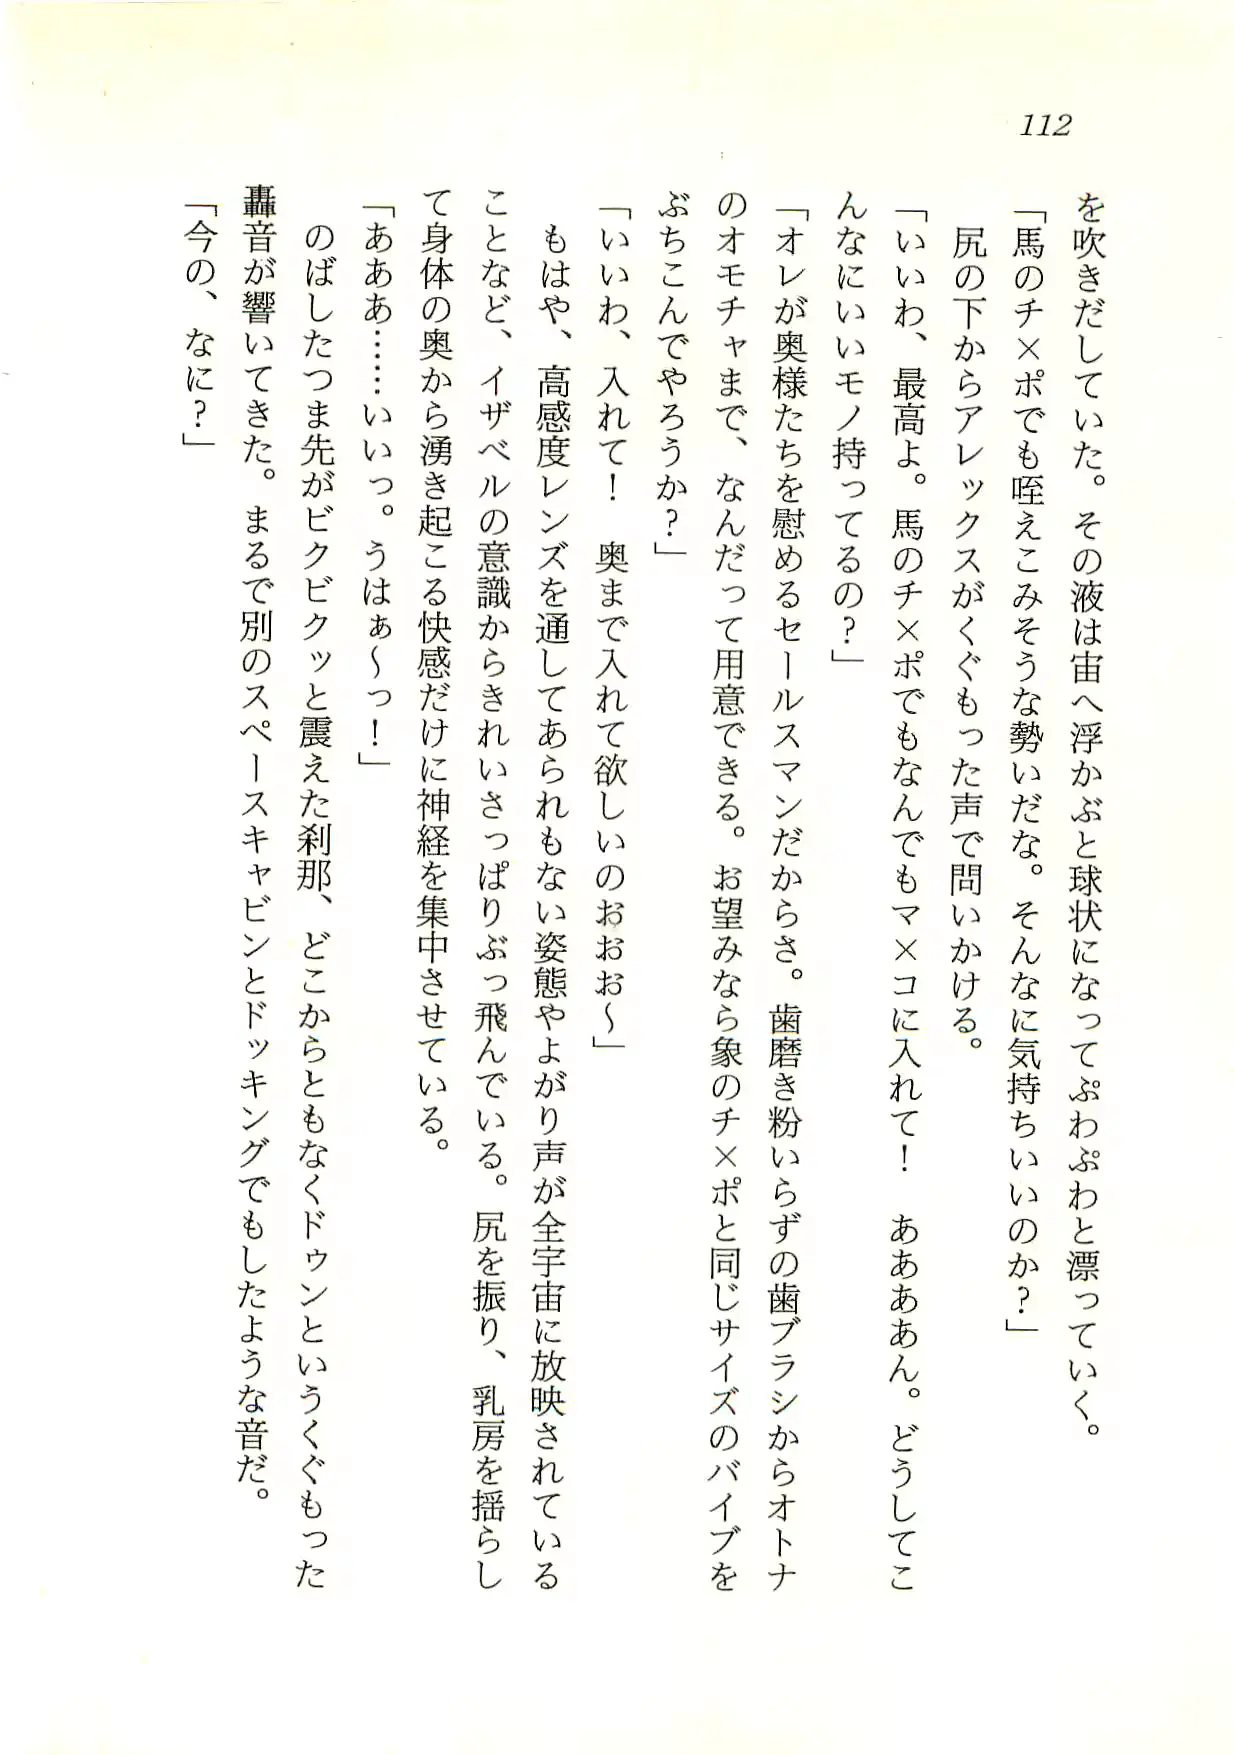 112
を吹きだしていた。その液は宙へ浮かぶと球状になってぷわぷわと漂っていく。
「馬のチ×ポでも咥えこみそうな勢いだな。そんなに気持ちいいのか?」
尻の下からアレックスがくぐもった声で問いかける。
「いいわ、最高よ。馬のチ×ポでもなんでもマ×コに入れて!　ああああん。どうしてこ
んなにいいモノ持ってるの?」
「オレが奥様たちを慰めるセールスマンだからさ。歯磨き粉いらずの歯ブラシからオトナ
のオモチャまで、なんだって用意できる。お望みなら象のチ×ポと同じサイズのバイブを
ぶちこんでやろうか?」
「いいわ、入れて!　奥まで入れて欲しいのおおお〜」
もはや、高感度レンズを通してあられもない姿態やよがり声が全宇宙に放映されている
ことなど、イザベルの意識からきれいさっぱりぶっ飛んでいる。尻を振り、乳房を揺らし
て身体の奥から湧き起こる快感だけに神経を集中させている。
「あああ……いいっ。うはぁ〜っ!」
のばしたつま先がビクビクッと震えた刹那、どこからともなくドゥンというくぐもった
轟音が響いてきた。まるで別のスペースキャビンとドッキングでもしたような音だ。
「今の、なに?」